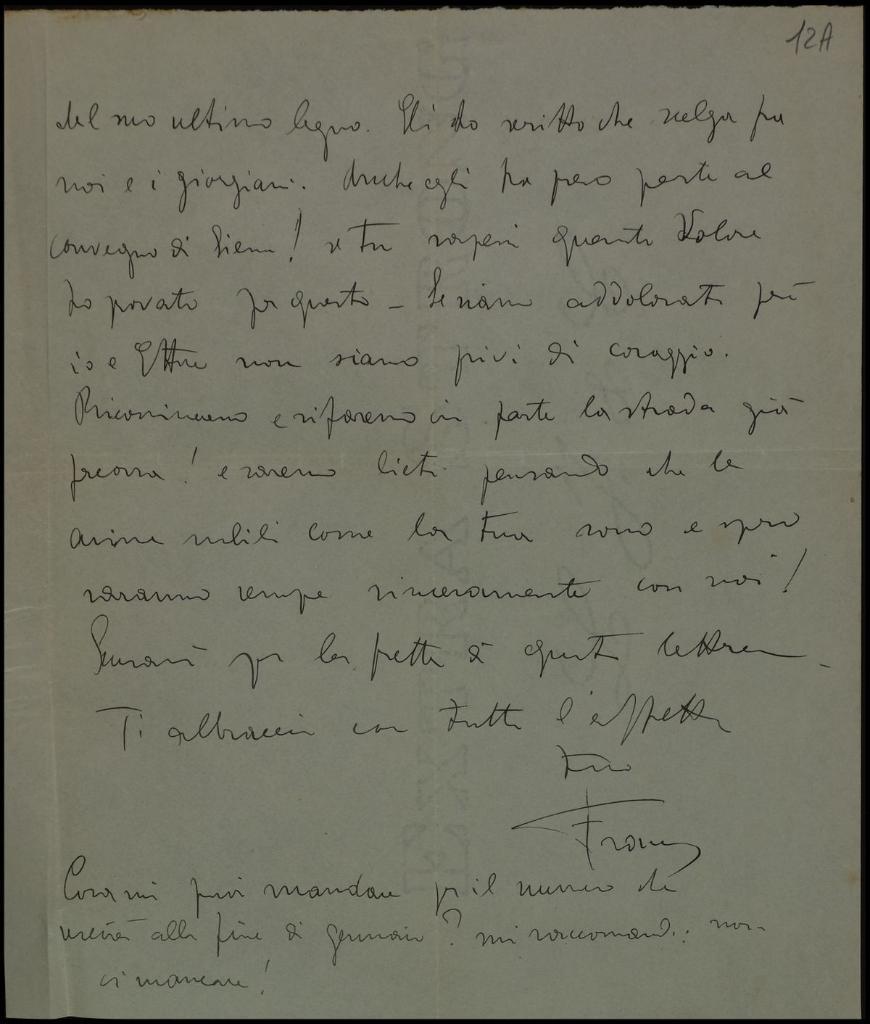 12A
del suo ultimo legno. Gli ho scritto che scelga fra
noi e i giorgiani. Anche egli ha preso parte al
convegno di Siena! se tu sapessi quanto dolore
ho provato per questo - Se siamo addolorati però
io e Ettore non siamo privi di coraggio.
Ricominceremo e rifaremo in parte la strada già
precorsa! e saremo lieti pensando che le
anime nobili come la tua sono e spero
saranno sempre sinceramente con noi!
Scusami per la fretta di questa lettera -
Ti abbraccio con tutto l'affetto
tuo
Franco
Cosa mi puoi mandare per il numero che
uscirà alla fine di gennaio? mi raccomando: non
ci mancare!